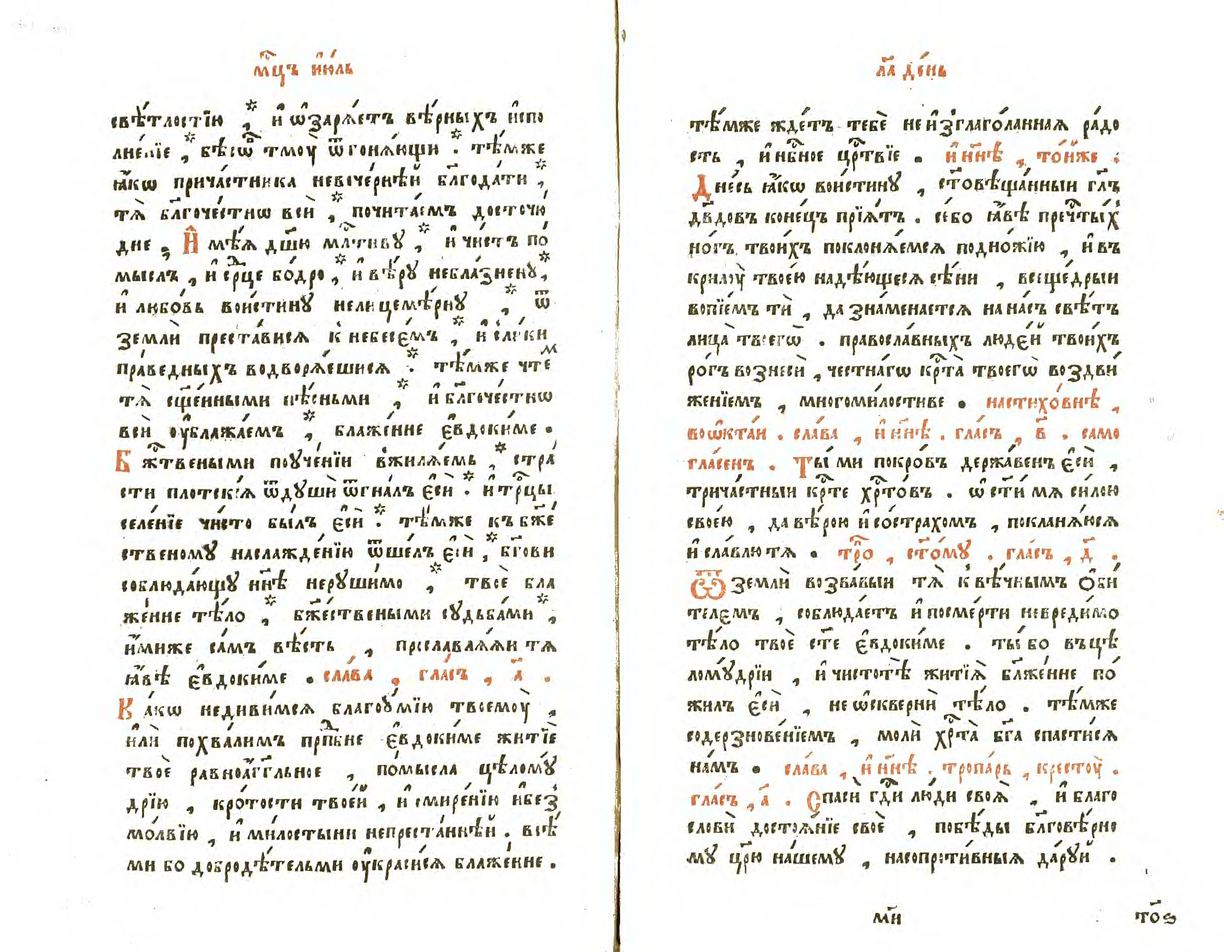 мц҃ъ і҆ю́ль
свѣ́тлостїю , и҆ ѡ҆заря́етъ вѣ́рныхъ и҆спо
лне́нїе , бѣсѡ́въ тмоу̀ ѿгоня́ющи . тѣ́мже
ꙗ҆́кѡ прича́стника невече́рнѣй бл҃года́ти ,
тѧ̀ бл҃гоче́стнѡ всѝ , почита́емъ досточю́
дне , И҆мѣ́ѧ дш҃ю мл҃тиву , и҆ чи́стъ по́
мыслъ , и҆ ср҃це бо́дро , и҆ вѣ́ру небла́зне́ну ,
и҆ любо́вь вои́стину нелицемѣ́рну , ѿ
землѝ преста́висѧ к небесе́мъ , и҆ с ли́ки
пра́ведныхъ водворѧ́ешисѧ . тѣ́мже чте́м
тѧ̀ сщ҃е́нными пѣ́сньми , и҆ бл҃гоче́стнѡ
всѝ оу҆блажа́емъ , блаже́нне є҆вдоки́ме .
Бжт҃веными поуче́нїи вжилѧ́емь , стра́
сти плотскі́ѧ ѿдушѝ ѿгна́лъ є҆сѝ . и҆ тр҃цы
селе́нїе чи́сто бы́лъ є҆сѝ . тѣ́мже къ бж҃е́
ственому наслажде́нїю ѿше́лъ є҆сѝ , бг҃ови
соблюда́ющу нн҃ѣ неруши́мо , твоѐ бла
же́нне тѣ́ло , бж҃е́ствеными судьба́ми ,
и҆́миже са́мъ вѣ́сть , просла́валѧй тѧ
ꙗ҆́вѣ є҆вдоки́ме . сла́ва , гла́съ , а҃ .
Ка́кѡ недиви́мсѧ благоꙋ́мїю твоемоу̀ ,
и҆лѝ похва́лимъ прп҃бне є҆вдоки́ме житїѐ
твоѐ равноа́гг҃льное , по́мысла цѣлому́
дрїю , кро́тости твое́й , и҆ смире́нїю и҆без̾
мо́лвїю , и҆ ми́лостыни непреста́ннѣй . всѣ́
ми бо добродѣ́тельми оу҆краси́сѧ блаже́нне .
л҃а де́нь
тѣ́мже жде́тъ тебѐ неи҆зглаго́ланная ра́до
сть , и҆ нб҃ное цр҃твїе . и҆ нн҃ѣ , то́йже :
Дне́сь ꙗ҆́кѡ вои́стину , ст҃овѣща́нныи гл҃ъ
дв҃довъ коне́цъ прїѧ́тъ . се́бо ꙗ҆́вѣ преч҃тыхъ
но́гъ твои́хъ поклонѧ́емсѧ подно́жїю , и҆ въ
крилоу̀ твое́ю надѣ́ющесѧ сѣ́ни , всеще́дрыи
вопїе́мъ тѝ , да зна́менаетсѧ на на́съ свѣ́тъ
лица̀ твоегѡ̀ . правосла́вныхъ люде́й твои́хъ
ро́гъ вознесѝ , честна́гѡ кр҃та̀ твоегѡ̀ воздви́
женїемъ , многоми́лостиве . настихо́внѣ ,
воѡ҆кта́и . сла́ва , и҆ нн҃ѣ . гла́съ , в҃ . само
гла́сенъ . Ты̀ ми покро́въ держа́венъ є҆сѝ ,
трича́стныи кр҃те хр҃то́въ . ѡ҆ст҃и мѧ си́лою
свое́ю , да вѣ́рою и҆ со стра́хомъ , покланѧ́юсѧ
и҆ сла́влю тѧ . тр҃о , ст҃о́му . гла́съ , д҃ .
Ѿ землѝ возва́выи тѧ̀ к вѣ́чнымъ ѻ҆би́
телемъ , соблюда́етъ и҆ посме́рти невреди́мо
тѣ́ло твоѐ ст҃е є҆вдоки́ме . ты́ бо въ цѣ
лому́дрїи , и҆ чистотѣ̀ житїѧ̀ бл҃же́нне по́
жилъ є҆сѝ , не ѡ҆скверни́ тѣ́ло . тѣ́мже
содерзнове́нїемъ , молѝ хр҃та̀ бг҃а спасти́сѧ
на́мъ . сла́ва , и҆ нн҃ѣ . тропа́рь , кресто́у .
гла́съ , а҃ . Спасѝ гд҃и лю́ди своѧ̀ , и҆ благо
словѝ достоѧ́нїе своѐ , побѣ́ды бл҃говѣ́рно
му цр҃ю на́шему , насопроти́вныѧ да́руй .
мн҃и
то҃ѕ